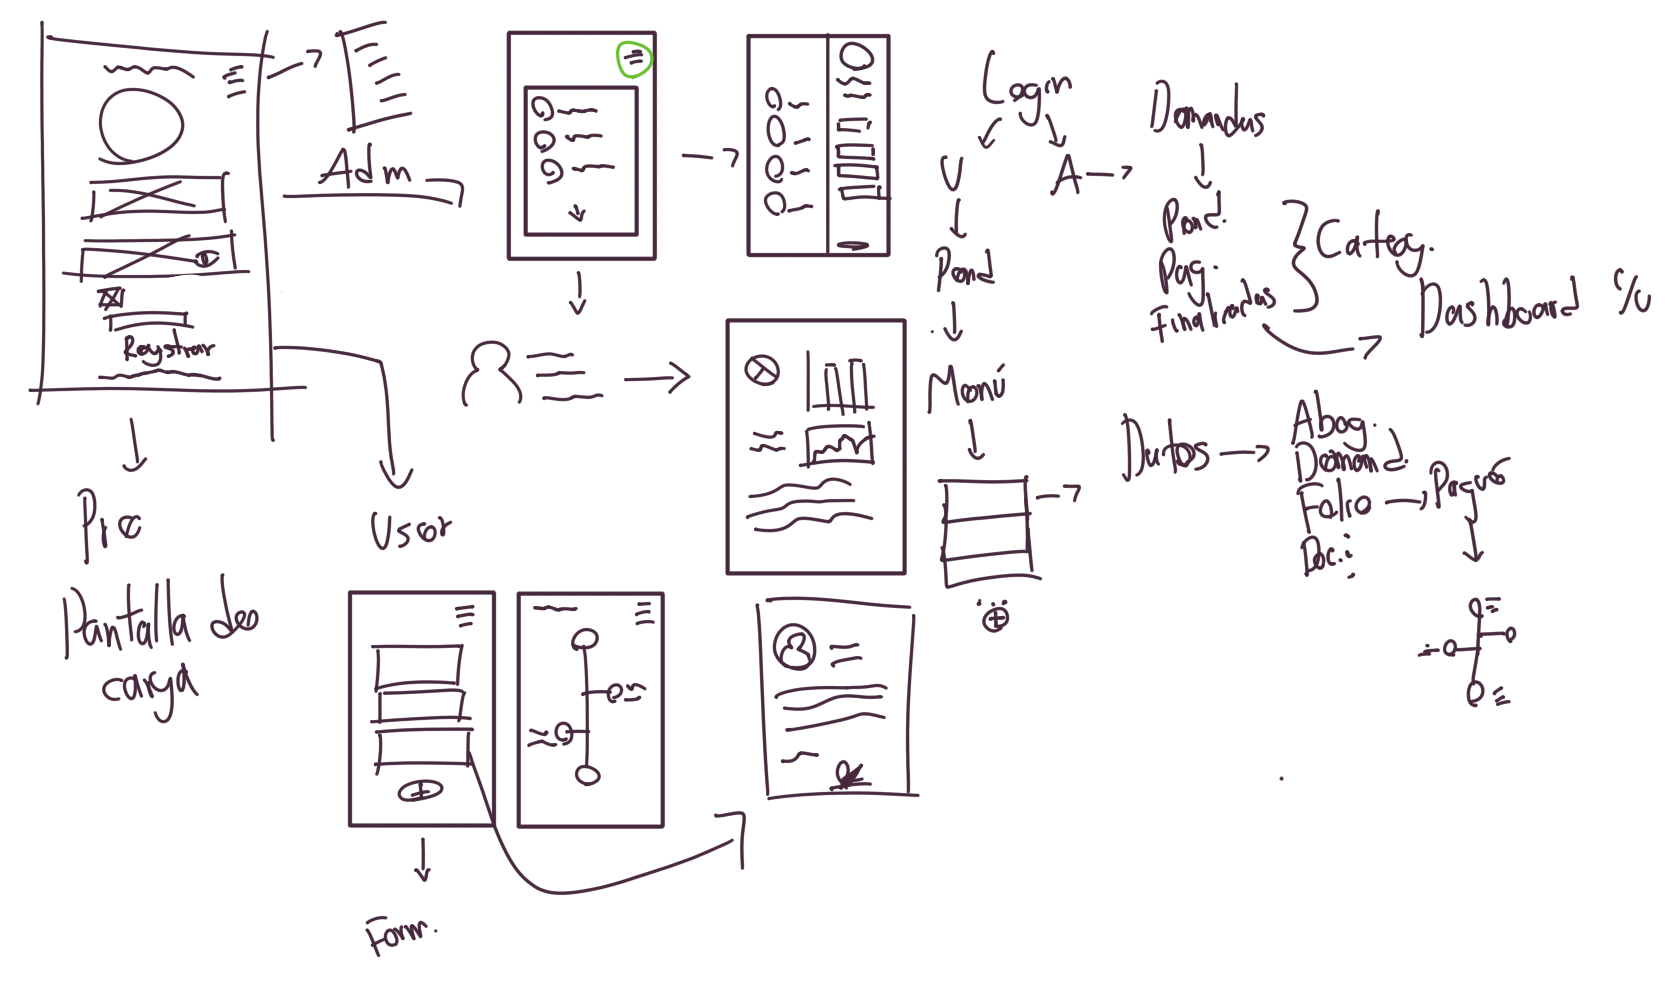 Adm
Registrar
Pre
Pantalla de
carga
User
Form.
Login
U
A
Pend
Menú
Demandas
Pend.
Pag.
Finalizadas
Categ.
Dashboard %
Datos
Abog.
Demand.
Folio
Doc.: